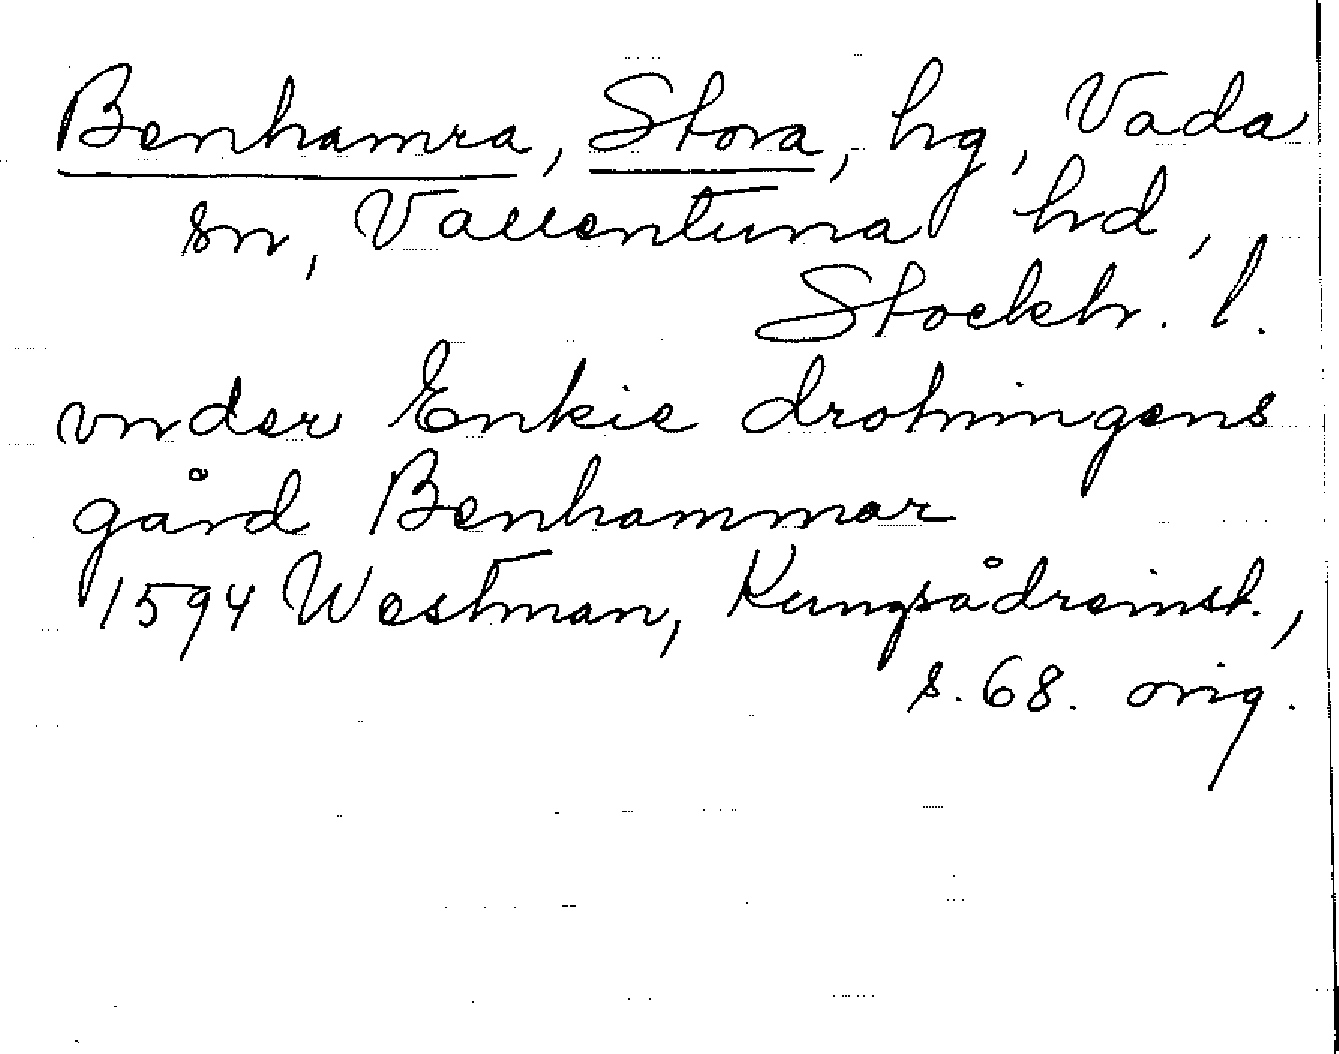 Benhamra, Stora, hg, Vada
sn, Vallentuna hd,
Stockh. l.
vnder Enkie drotningens
gård Benhammar
1594 Westman, Kungsådreinst.,
s. 68. orig.